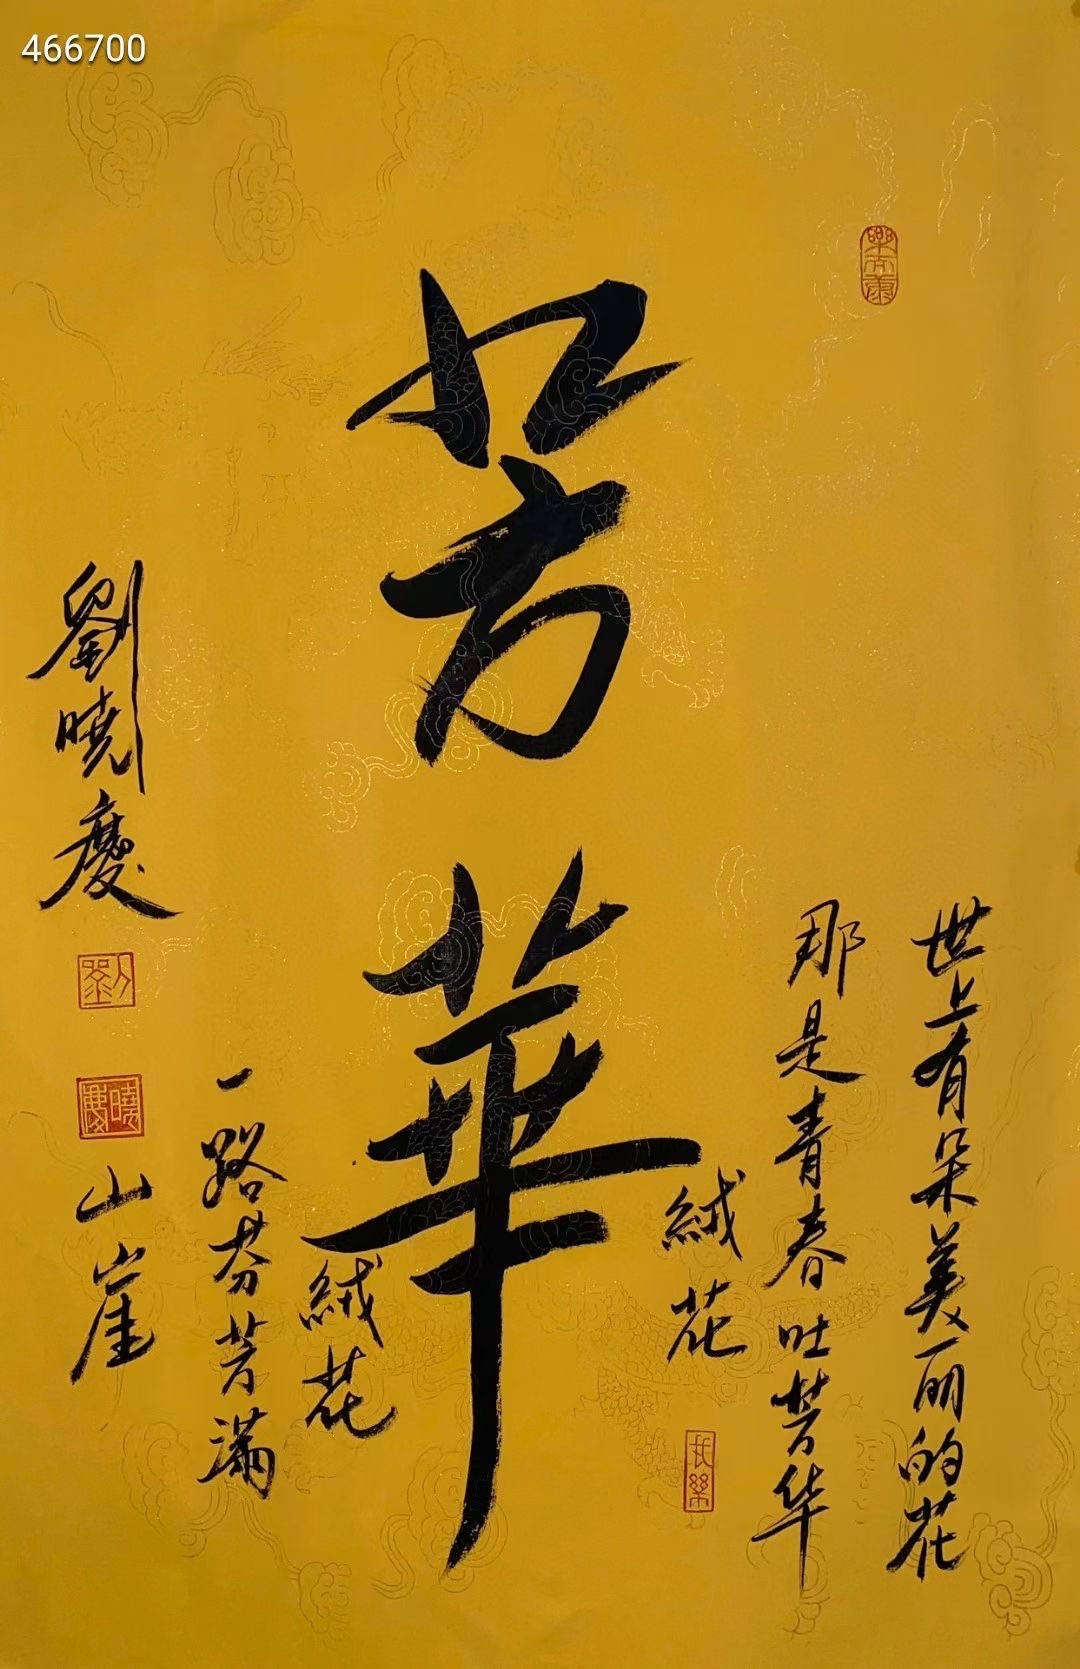 466700
芳華
世上有朵美丽的花
那是青春吐芳华
絨花
絨花
一路芬芳滿
山崖
劉曉慶
劉
曉慶